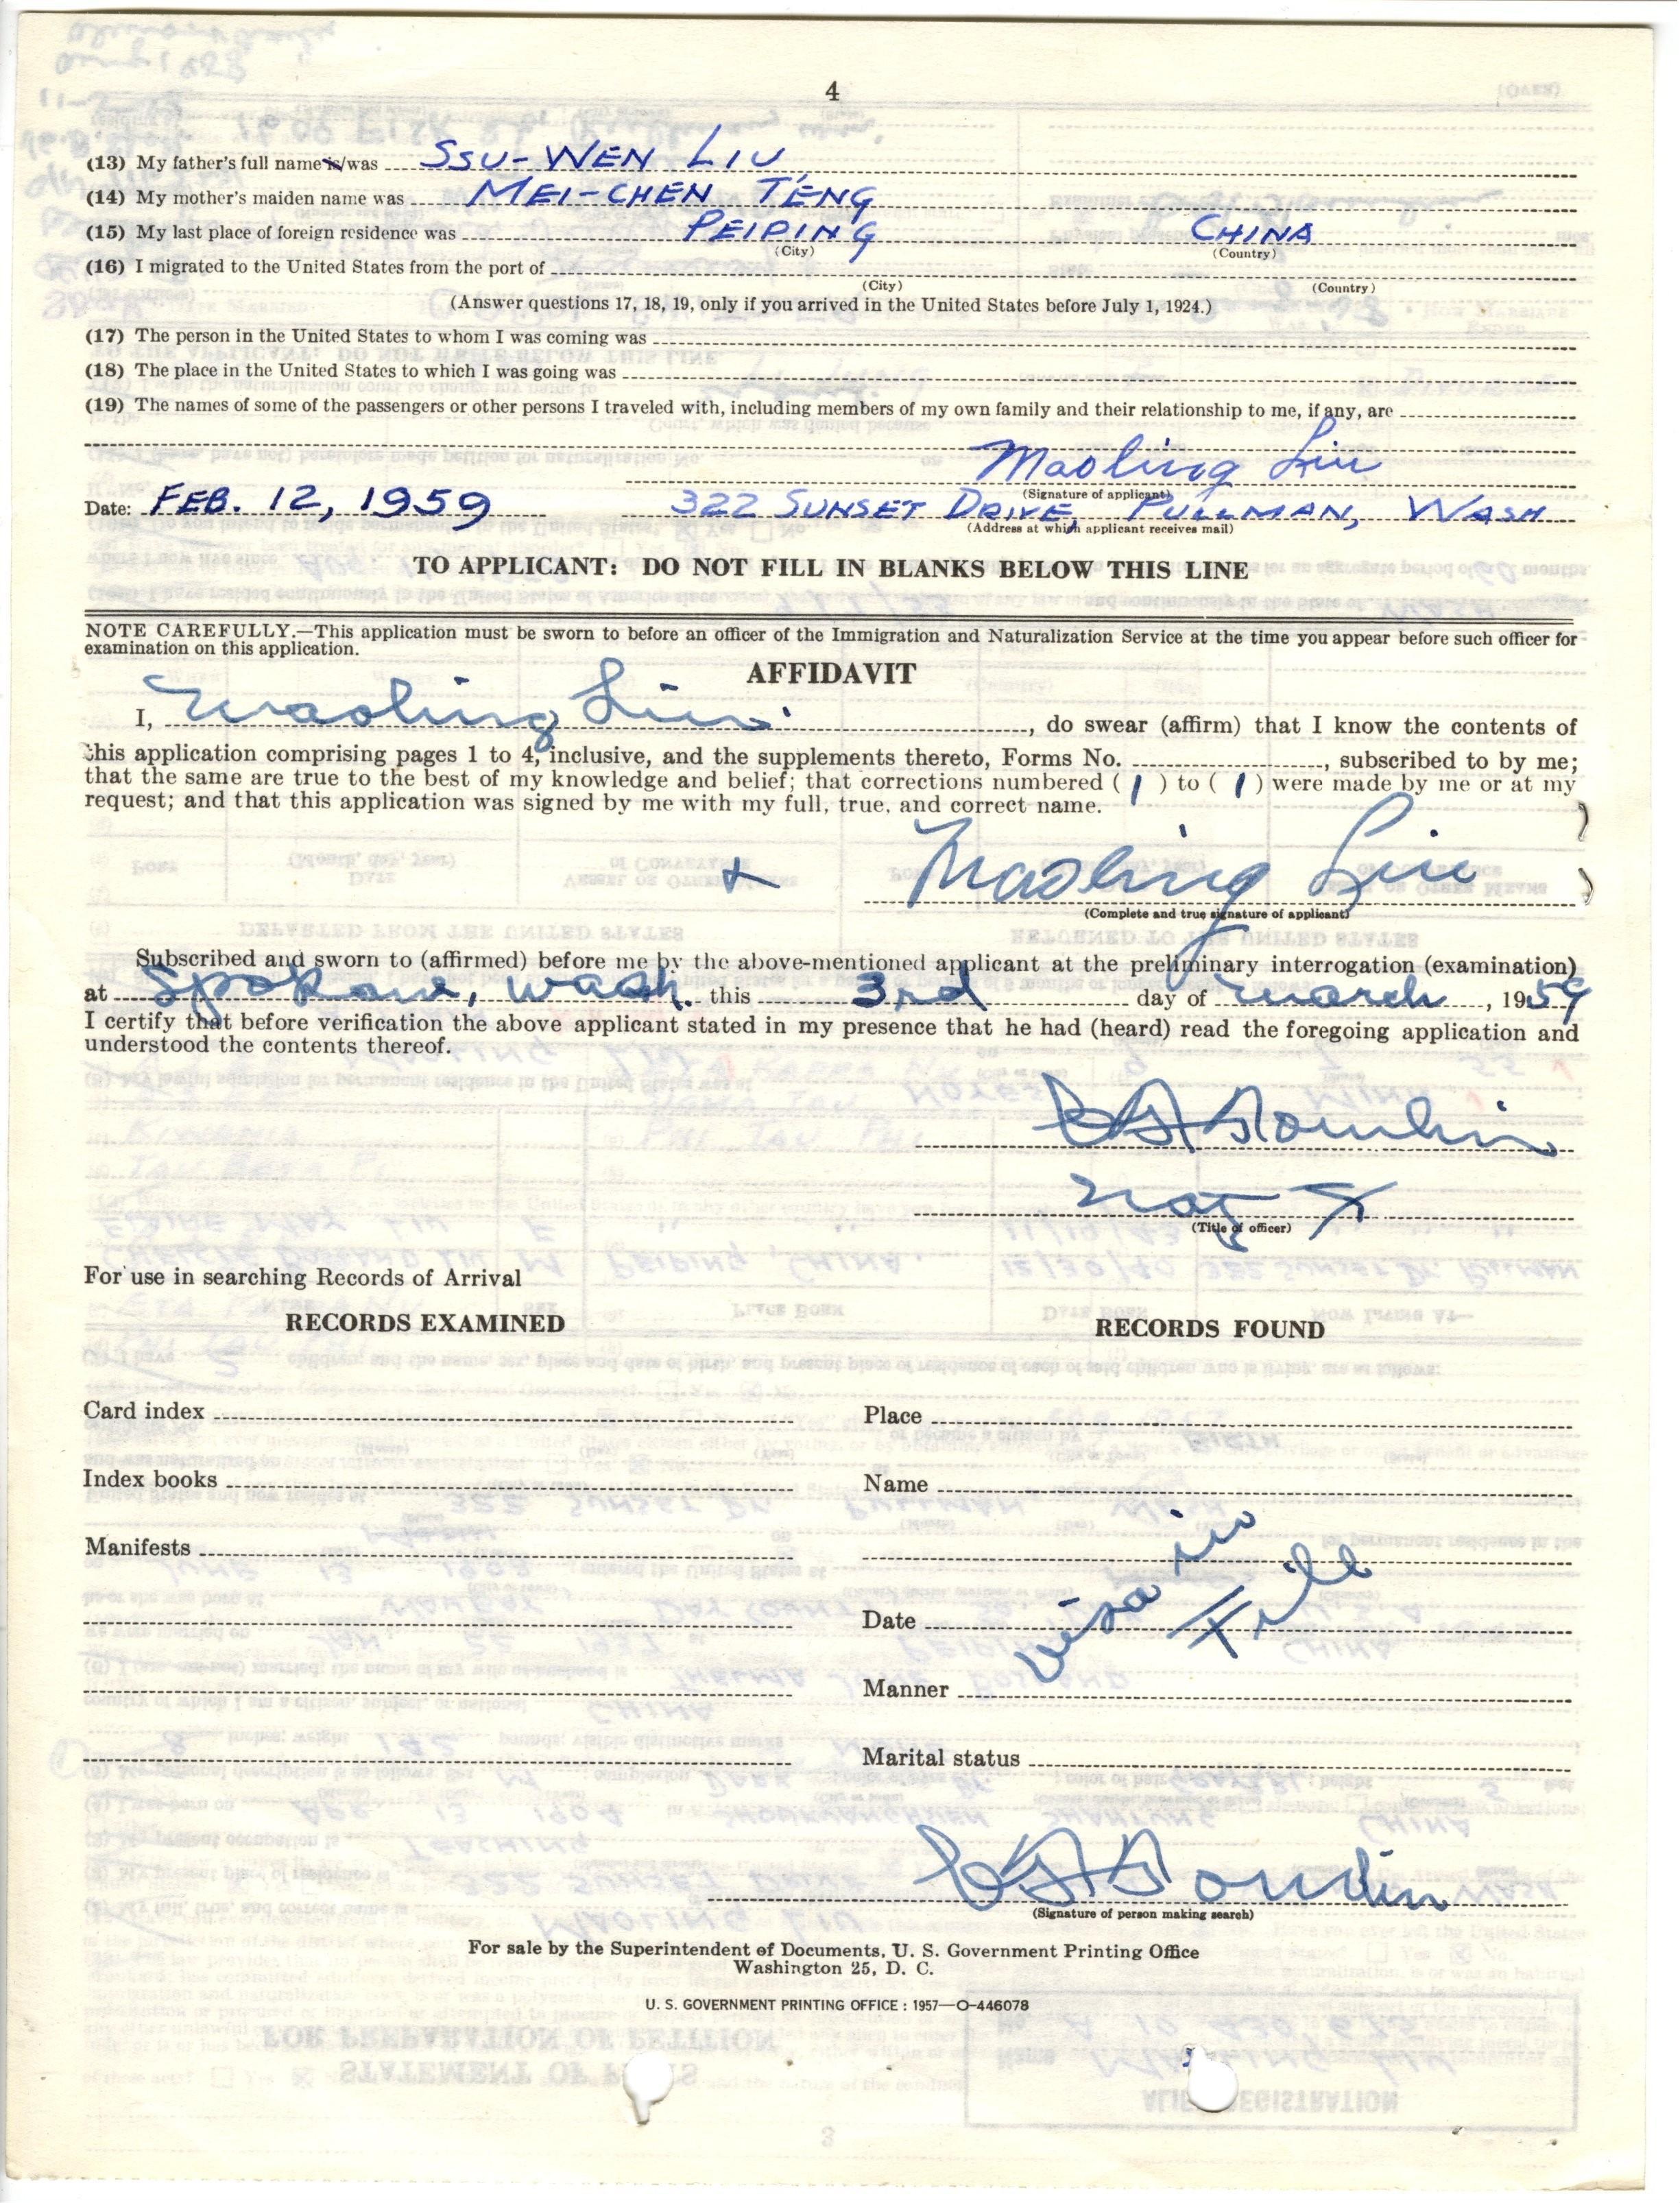 4
(13) My father's full name is/was SSU-WEN LIU
(14) My mother's maiden name was MEI-CHEN TENG
(15) My last place of foreign residence was PEIPING CHINA
(City) (Country)
(16) I migrated to the United States from the port of
(City) (Country)
(Answer questions 17, 18, 19, only if you arrived in the United States before July 1, 1924.)
(17) The person in the United States to whom I was coming was
(18) The place in the United States to which I was going was
(19) The names of some of the passengers or other persons I traveled with, including members of my own family and their relationship to me, if any, are
Maoling Liu
(Signature of applicant)
Date: FEB. 12, 1959 322 SUNSET DRIVE, PULLMAN, WASH
(Address at which applicant receives mail)
TO APPLICANT: DO NOT FILL IN BLANKS BELOW THIS LINE
NOTE CAREFULLY.—This application must be sworn to before an officer of the Immigration and Naturalization Service at the time you appear before such officer for
examination on this application.
AFFIDAVIT
I, Maoling Liu, do swear (affirm) that I know the contents of
this application comprising pages 1 to 4, inclusive, and the supplements thereto, Forms No. , subscribed to by me;
that the same are true to the best of my knowledge and belief; that corrections numbered ( 1 ) to ( 1 ) were made by me or at my
request; and that this application was signed by me with my full, true, and correct name.
Maoling Liu
(Complete and true signature of applicant)
Subscribed and sworn to (affirmed) before me by the above-mentioned applicant at the preliminary interrogation (examination)
at Spokane, Wash. this 3rd day of March, 1959
I certify that before verification the above applicant stated in my presence that he had (heard) read the foregoing application and
understood the contents thereof.
(Title of officer)
For use in searching Records of Arrival
RECORDS EXAMINED RECORDS FOUND
Card index Place
Index books Name
Manifests
Date
visa in
File
Manner
Marital status
(Signature of person making search)
For sale by the Superintendent of Documents, U. S. Government Printing Office
Washington 25, D. C.
U. S. GOVERNMENT PRINTING OFFICE : 1957—O-446078